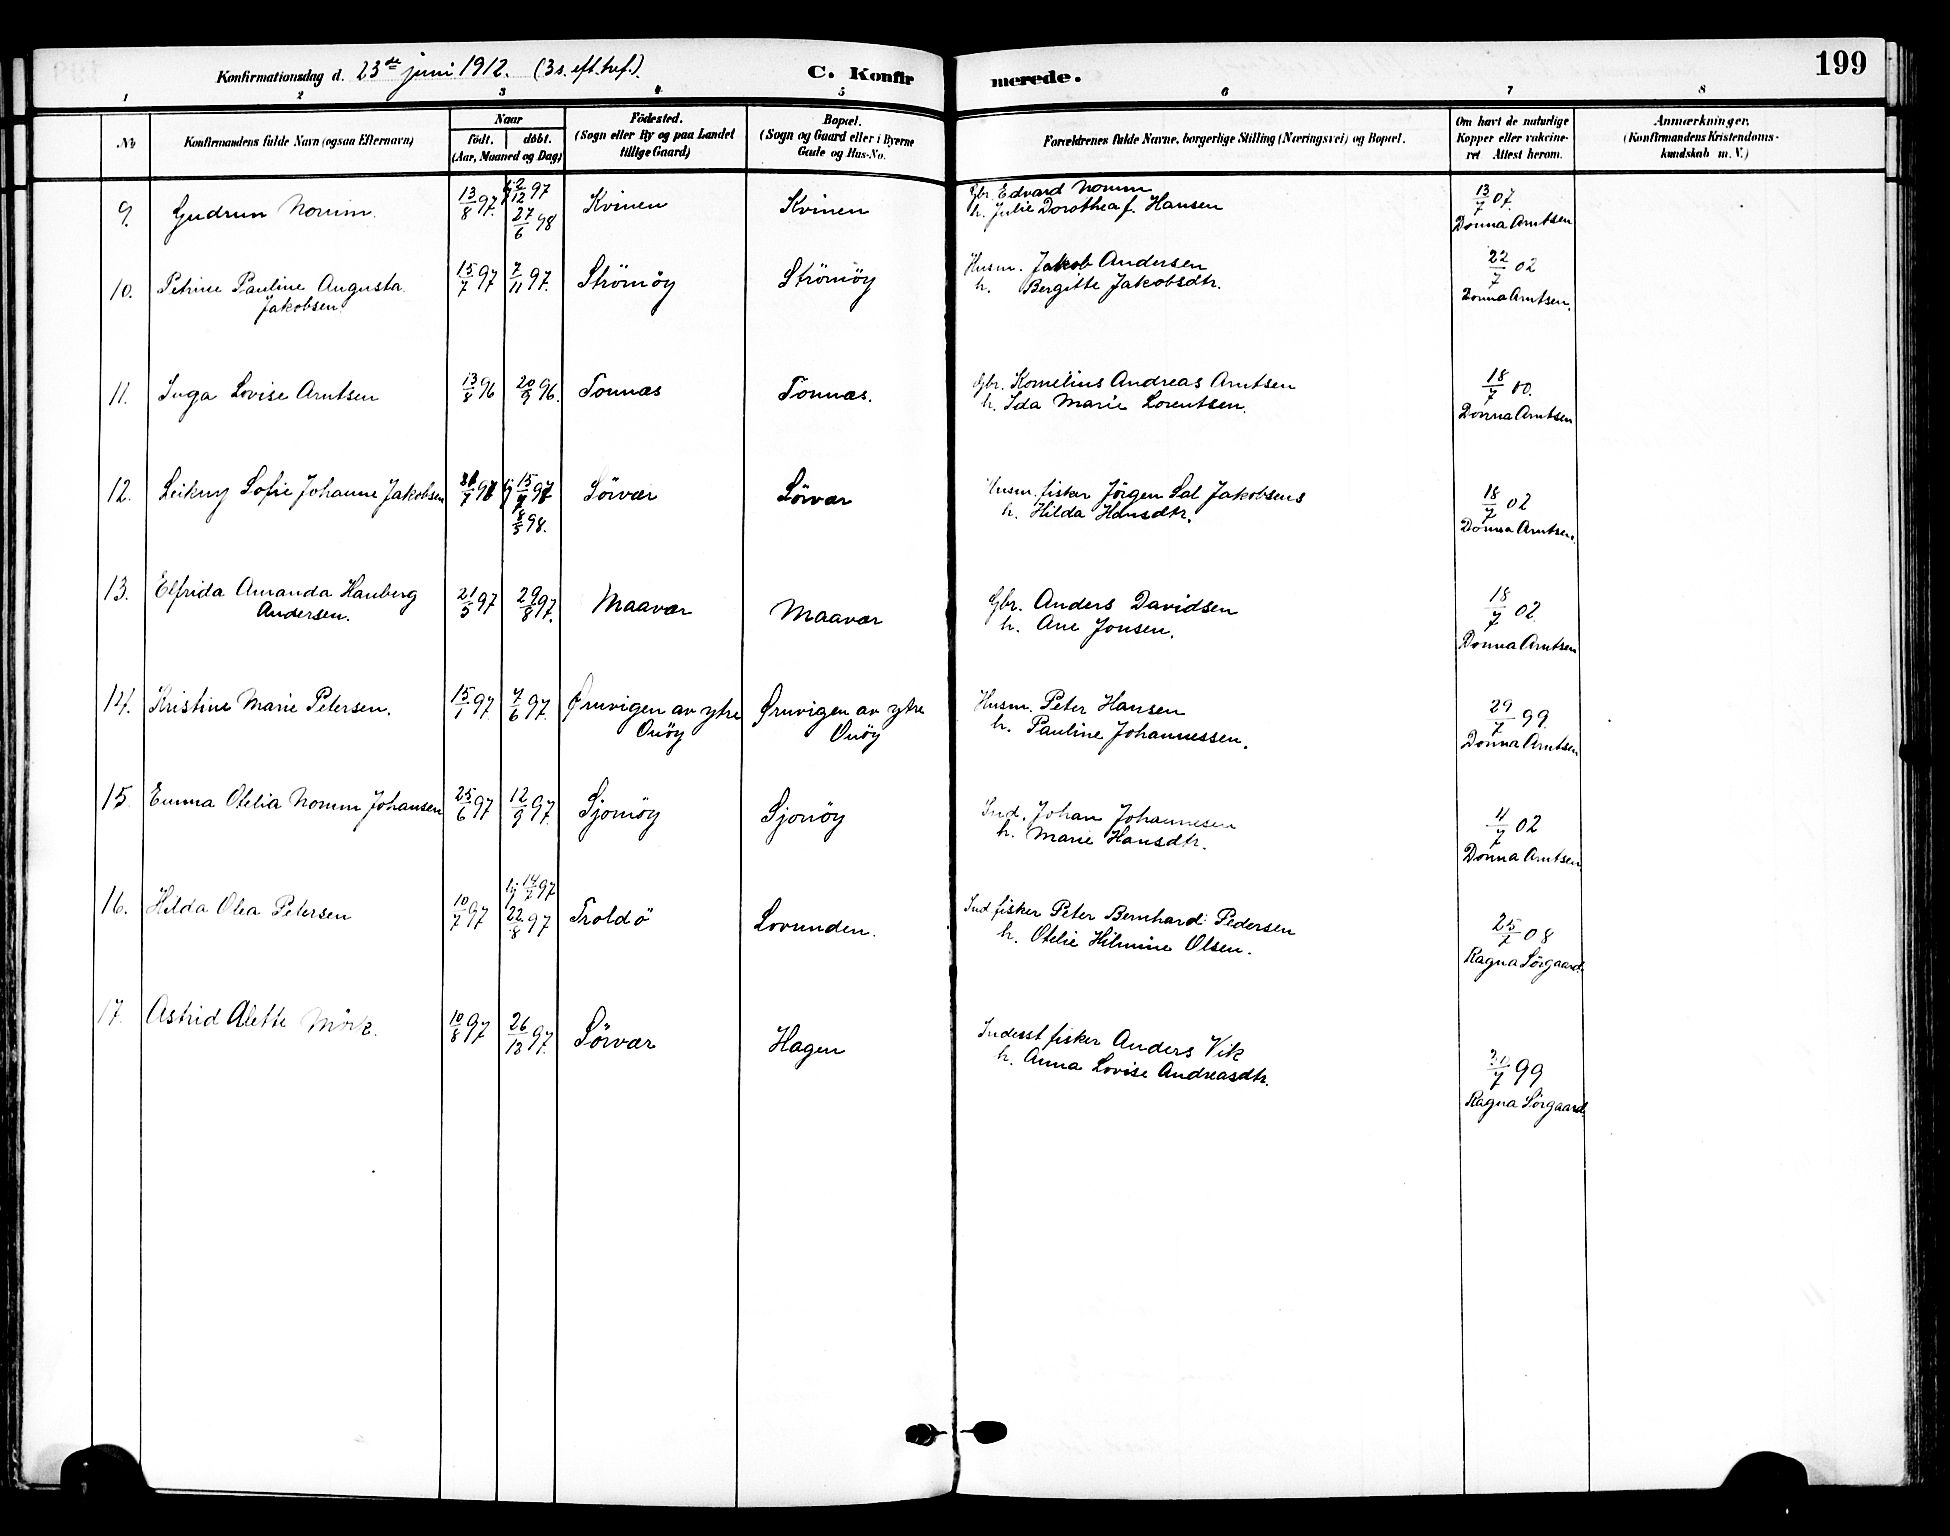 199
Konfirmationsdag d. 23de juni 1912. (3 s. eft. tref.) C. Konfirmerede.
1 2 3 4 5 6 7 8
No
Konfirmandens fulde Navn (ogsaa Efternavn)
Naar
födt. döbt.
(Aar, Maaned og Dag)
Födested.
(Sogn eller By og paa Landet
tillige Gaard)
Bopæl.
(Sogn og Gaard eller i Byerne
Gade og Hus-No.
Forældrenes fulde Navne, borgerlige Stilling (Næringsvei) og Bopæl.
Om havt de naturlige
Kopper eller vakcine-
ret Attest herom.
Anmærkninger,
(Konfirmandens Kristendoms-
kundskab m. V.)
9. Gudrun Nomm. 13/8 97. hj 2/12 97 27/6 98 Kvinen Kvinen
Gbr. Edvard Nomm
h. Julie Dorothea f. Hansen
13/7 07.
Donna Arntsen
10. Petrine Pauline Augusta
Jakobsen 15/7 97 7/11 97. Strömöy Strömöy
Husm. Jakob Andersen
h. Bergitte Jakobsdtr.
22/7 02
Donna Arntsen.
11. Inga Lovise Arntsen 13/8 96 20/9 96. Tonnæs Tonnæs.
Gbr. Kornelius Andreas Arntsen
h. Ida Marie Lorentsen.
18/7 00.
Donna Arntsen
12. Leikny Sofie Johanne Jakobsen Sörvær Sörvær
Husm. fisker Jörgen Sal Jakobsens
h. Hilda Hansdtr.
18/7 02
Donna Arntsen.
13. Elfrida Amanda Hauberg
Andersen. 21/5 97 29/8 97. Maavær Maavær
Gbr. Anders Davidsen
h. Ane Jonsen.
18/7 02.
Donna Arntsen
14. Kristine Marie Petersen. 15/1 97 7/6 97. Ørnvigen av ytre
Onöy Ørnvigen av ytre
Onöy
Husm. Peter Hansen
h. Pauline Johannessen.
29/7 99.
Donna Arntsen
15. Emma Otelia Nomm Johansen 25/6 97 12/9 97. Sjonöy Sjonöy
Ind. Johan Johannesen
h. Marie Hansdtr.
4/7 02
Donna Arntsen
16. Hilda Olea Petersen 10/7 97 hj 14/7 97 22/8 97 Troldö Lovunden.
Ind fisker Peter Bernhard Pedersen
h. Otelie Hilmine Olsen.
25/7 08
Ragna Sörgaard.
17. Astrid Alette Mörk. 10/8 97 26/13 97. Sörvær Hagen
Inderst fisker Anders Vik
h. Anna Lovise Andreasdtr.
99
Ragna Sörgaard.